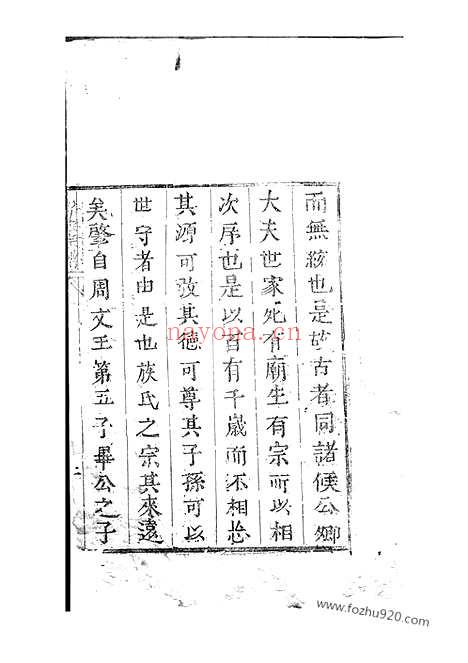 而無紊也是故古者同諸候公卿
大夫世家死有廟生有宗所以相
次序也是以百有千歲而不相忘
其源可攷其德可尊其子孫可以
世守者由是也族氏之宗其來遠
矣肇自周文王第五子畢公之子
二
nayona.cn
www.fozhu920.com